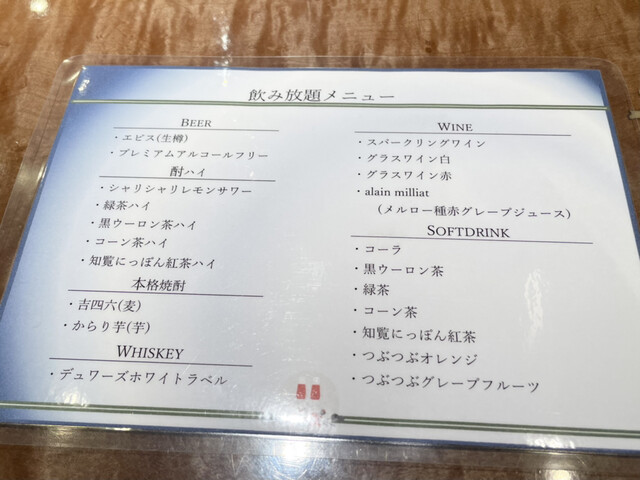 飲み放題メニュー
BEER
・エビス(生樽)
・プレミアムアルコールフリー
酎ハイ
・シャリシャリレモンサワー
・緑茶ハイ
・黒ウーロン茶ハイ
・コーン茶ハイ
・知覧にっぽん紅茶ハイ
本格焼酎
・吉四六(麦)
・からり芋(芋)
WHISKEY
・デュワーズホワイトラベル
WINE
・スパークリングワイン
・グラスワイン白
・グラスワイン赤
・alain milliat
(メルロー種赤グレープジュース)
SOFTDRINK
・コーラ
・黒ウーロン茶
・緑茶
・コーン茶
・知覧にっぽん紅茶
・つぶつぶオレンジ
・つぶつぶグレープフルーツ